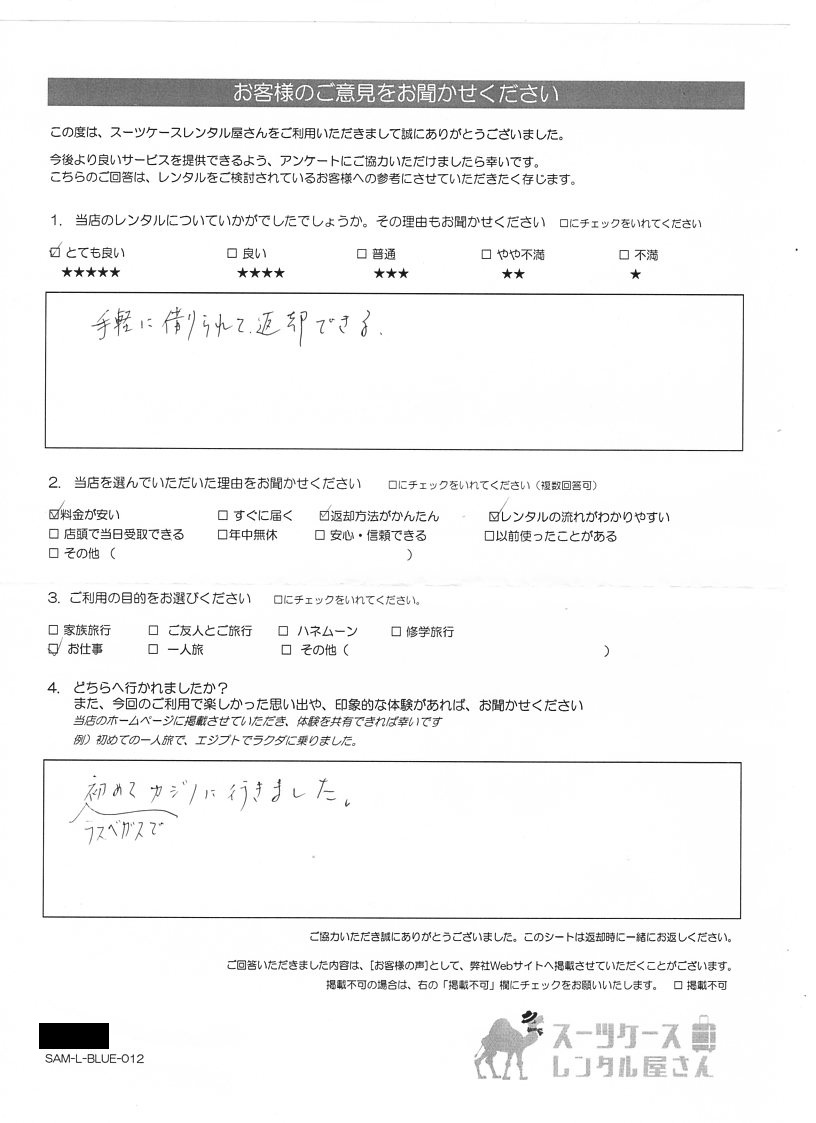 お客様のご意見をお聞かせください
この度は、スーツケースレンタル屋さんをご利用いただきまして誠にありがとうございました。
今後より良いサービスを提供できるよう、アンケートにご協力いただけましたら幸いです。
こちらのご回答は、レンタルをご検討されているお客様への参考にさせていただきたく存じます。
1. 当店のレンタルについていかがでしたでしょうか。その理由もお聞かせください ☐にチェックをいれてください
☑ とても良い ☐ 良い ☐ 普通 ☐ やや不満 ☐ 不満
★★★★★ ★★★★ ★★★ ★★ ★
手軽に借りられて、返却できる、
2. 当店を選んでいただいた理由をお聞かせください ☐にチェックをいれてください（複数回答可）
☑料金が安い ☐ すぐに届く ☑返却方法がかんたん ☑レンタルの流れがわかりやすい
☐ 店頭で当日受取できる ☐年中無休 ☐ 安心・信頼できる ☐以前使ったことがある
☐ その他（ ）
3. ご利用の目的をお選びください ☐にチェックをいれてください。
☐ 家族旅行 ☐ ご友人とご旅行 ☐ ハネムーン ☐ 修学旅行
☑ お仕事 ☐ 一人旅 ☐ その他（ ）
4. どちらへ行かれましたか？
また、今回のご利用で楽しかった思い出や、印象的な体験があれば、お聞かせください
当店のホームページに掲載させていただき、体験を共有できれば幸いです
例）初めての一人旅で、エジプトでラクダに乗りました。
初めてカジノに行きました。
ラスベガスで
ご協力いただき誠にありがとうございました。このシートは返却時に一緒にお返しください。
ご回答いただきました内容は、[お客様の声]として、弊社Webサイトへ掲載させていただくことがございます。
掲載不可の場合は、右の「掲載不可」欄にチェックをお願いいたします。 ☐ 掲載不可
SAM-L-BLUE-012
スーツケース
レンタル屋さん